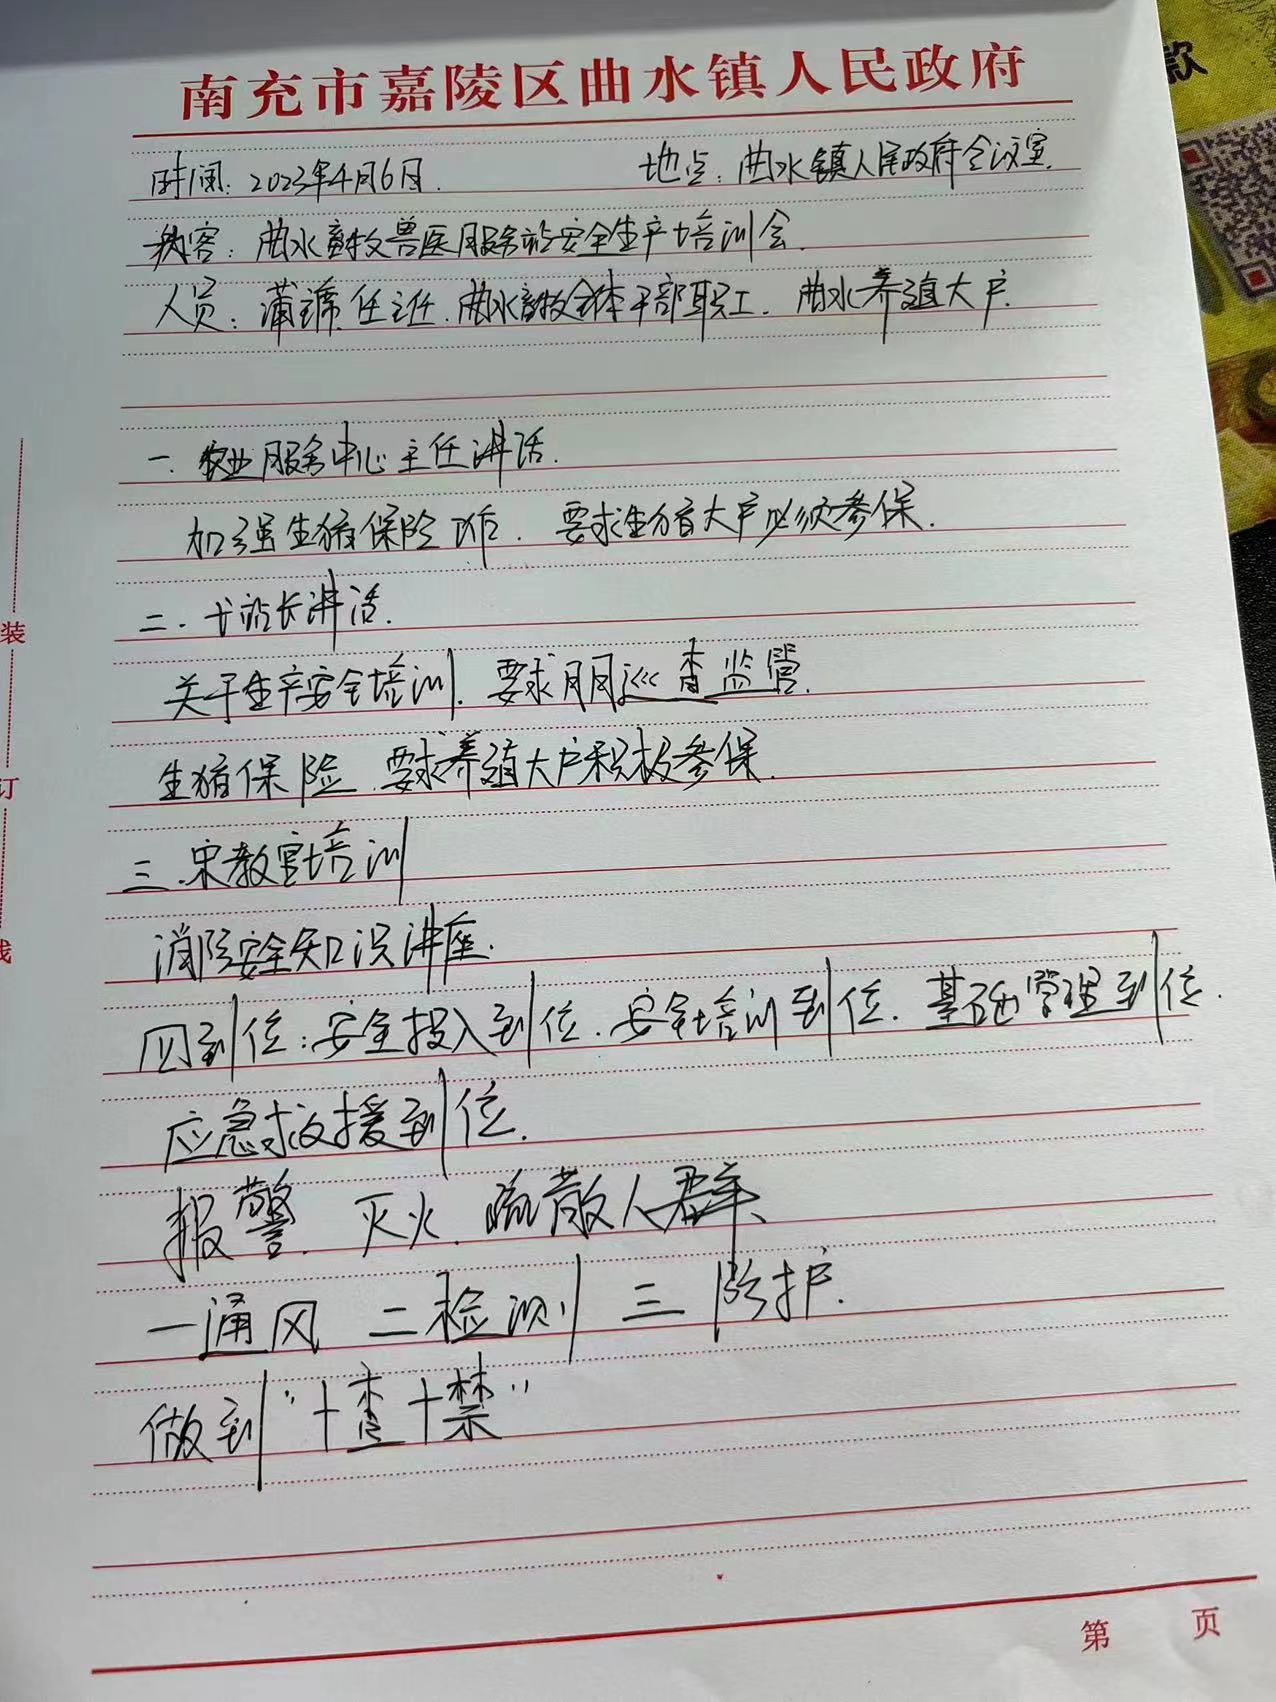 南充市嘉陵区曲水镇人民政府
时间：2023年4月6日.　地点：曲水镇人民政府会议室.
内容：曲水畜牧兽医服务站安全生产培训会.
人员：蒲 任主任.曲水畜牧全体干部职工. 曲水养殖大户.
一.农业服务中心主任讲话.
加强生猪保险工作. 要求生猪大户必须参保.
二. 站长讲话.
关于生产安全培训. 要求 巡查监管.
生猪保险.要求养殖大户积极参保.
三.宋教官培训
消防安全知识讲座.
四到位：安全投入到位.安全培训到位.基础管理到位.
应急救援到位.
报警. 灭火. 疏散人群、
一通风 二检测 三防护.
做到“十查十禁”
第 页
装
订
线
款